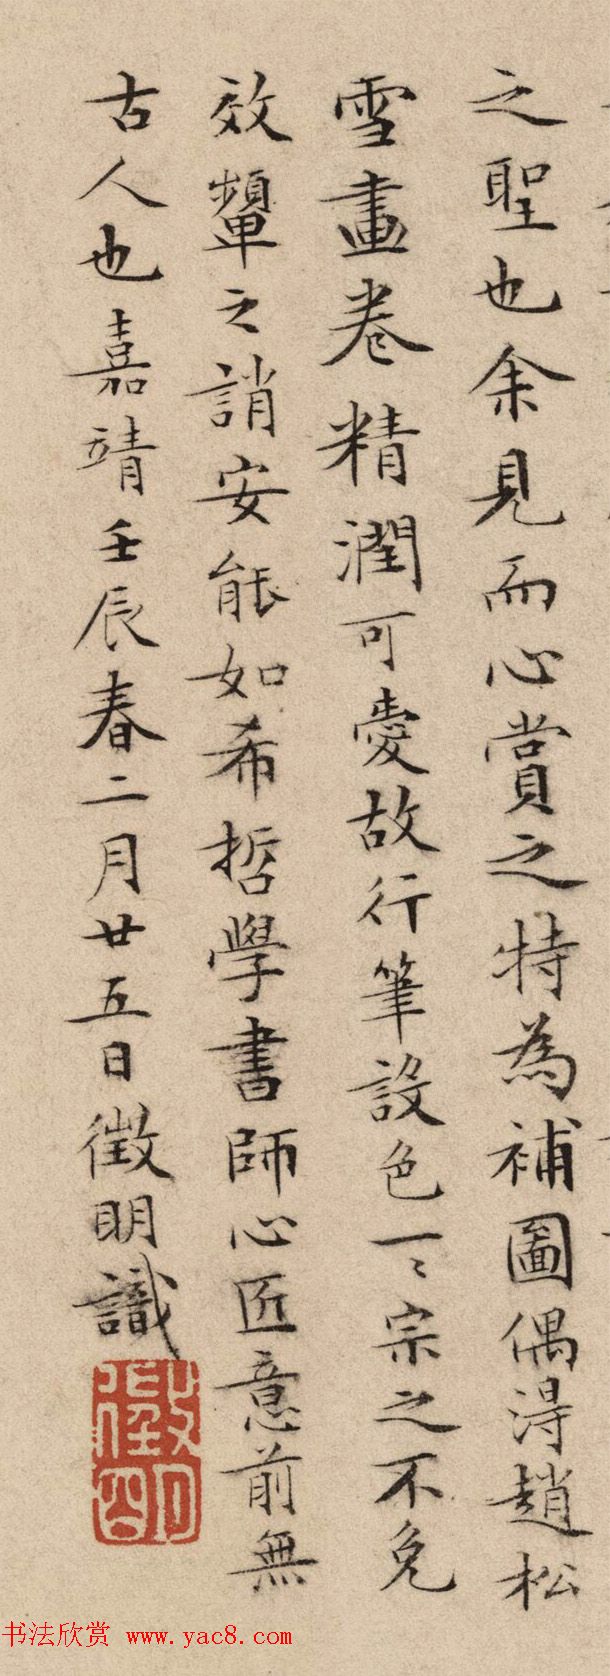 之聖也余見而心賞之特為補圖偶淂趙松
雪畫卷精潤可愛故行筆設色一〻宗之不免
效顰之誚安能如希哲學書師心匠意前無
古人也嘉靖壬辰春二月廿五日徵明識
徵明
书法欣赏 www.yac8.com